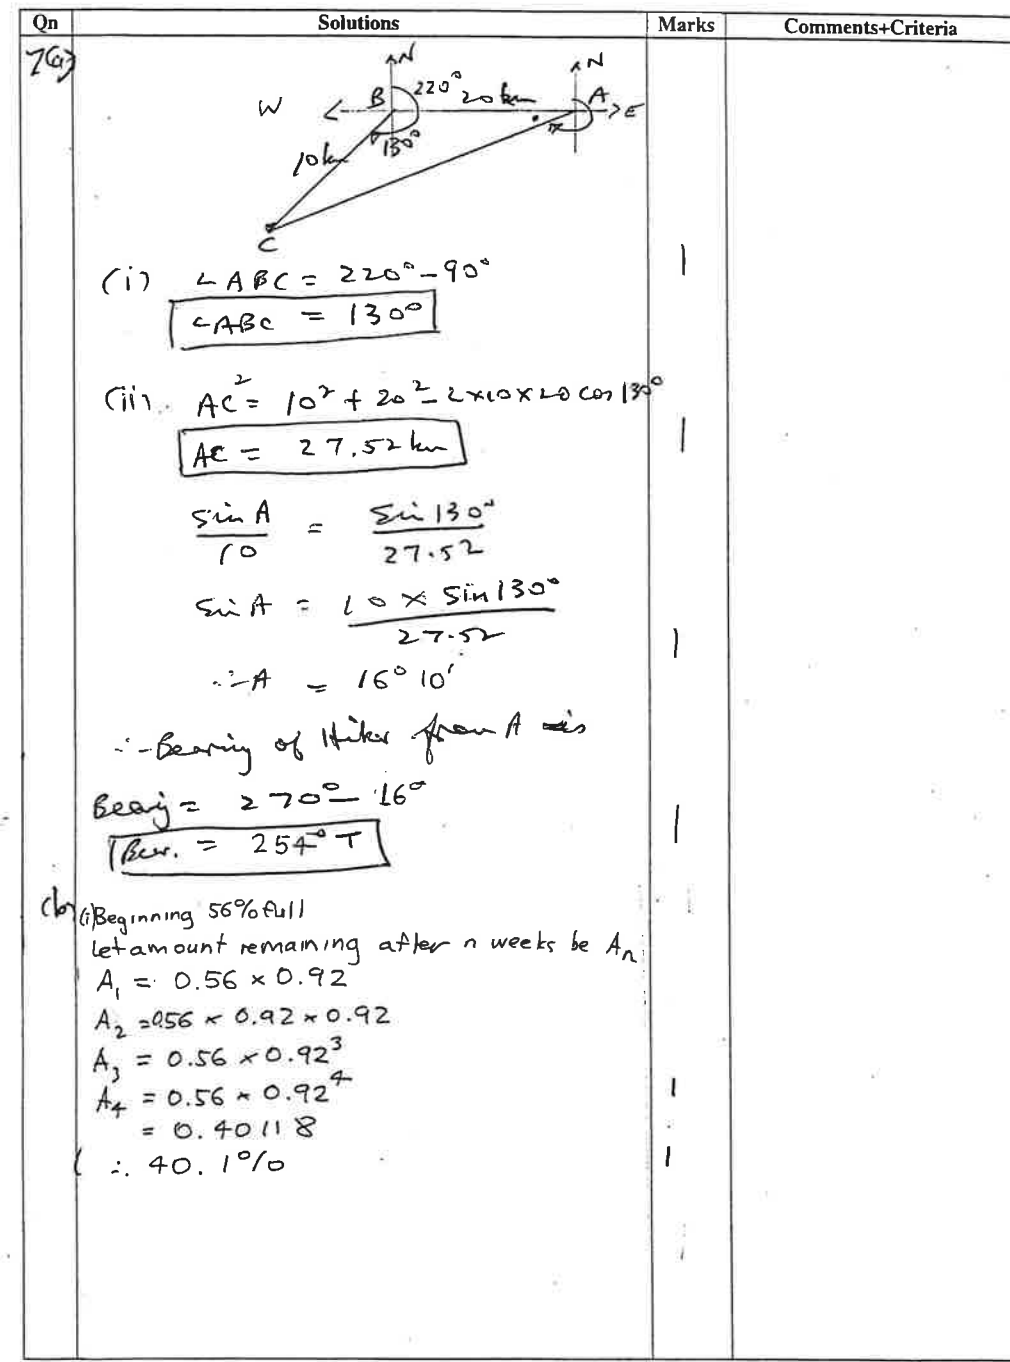 Qn Solutions Marks Comments+Criteria
7(a)
N N
W B 220° 20 km A E
130° x
10km
C
(i) ∠ABC = 220° - 90° 1
∠ABC = 130°
(ii) AC² = 10² + 20² - 2×10×20 cos 130°
AC = 27.52 km 1
sin A / 10 = Sin 130° / 27.52
sin A = 10 × Sin 130° / 27.52
∴ A = 16° 10' 1
∴ Bearing of Hiker from A is
Bearing = 270° - 16°
Bear. = 254° T 1
(b) (i) Beginning 56% full
let amount remaining after n weeks be Aₙ
A₁ = 0.56 × 0.92
A₂ = 0.56 × 0.92 × 0.92
A₃ = 0.56 × 0.92³
A₄ = 0.56 × 0.92⁴ 1
= 0.40118
∴ 40.1% 1